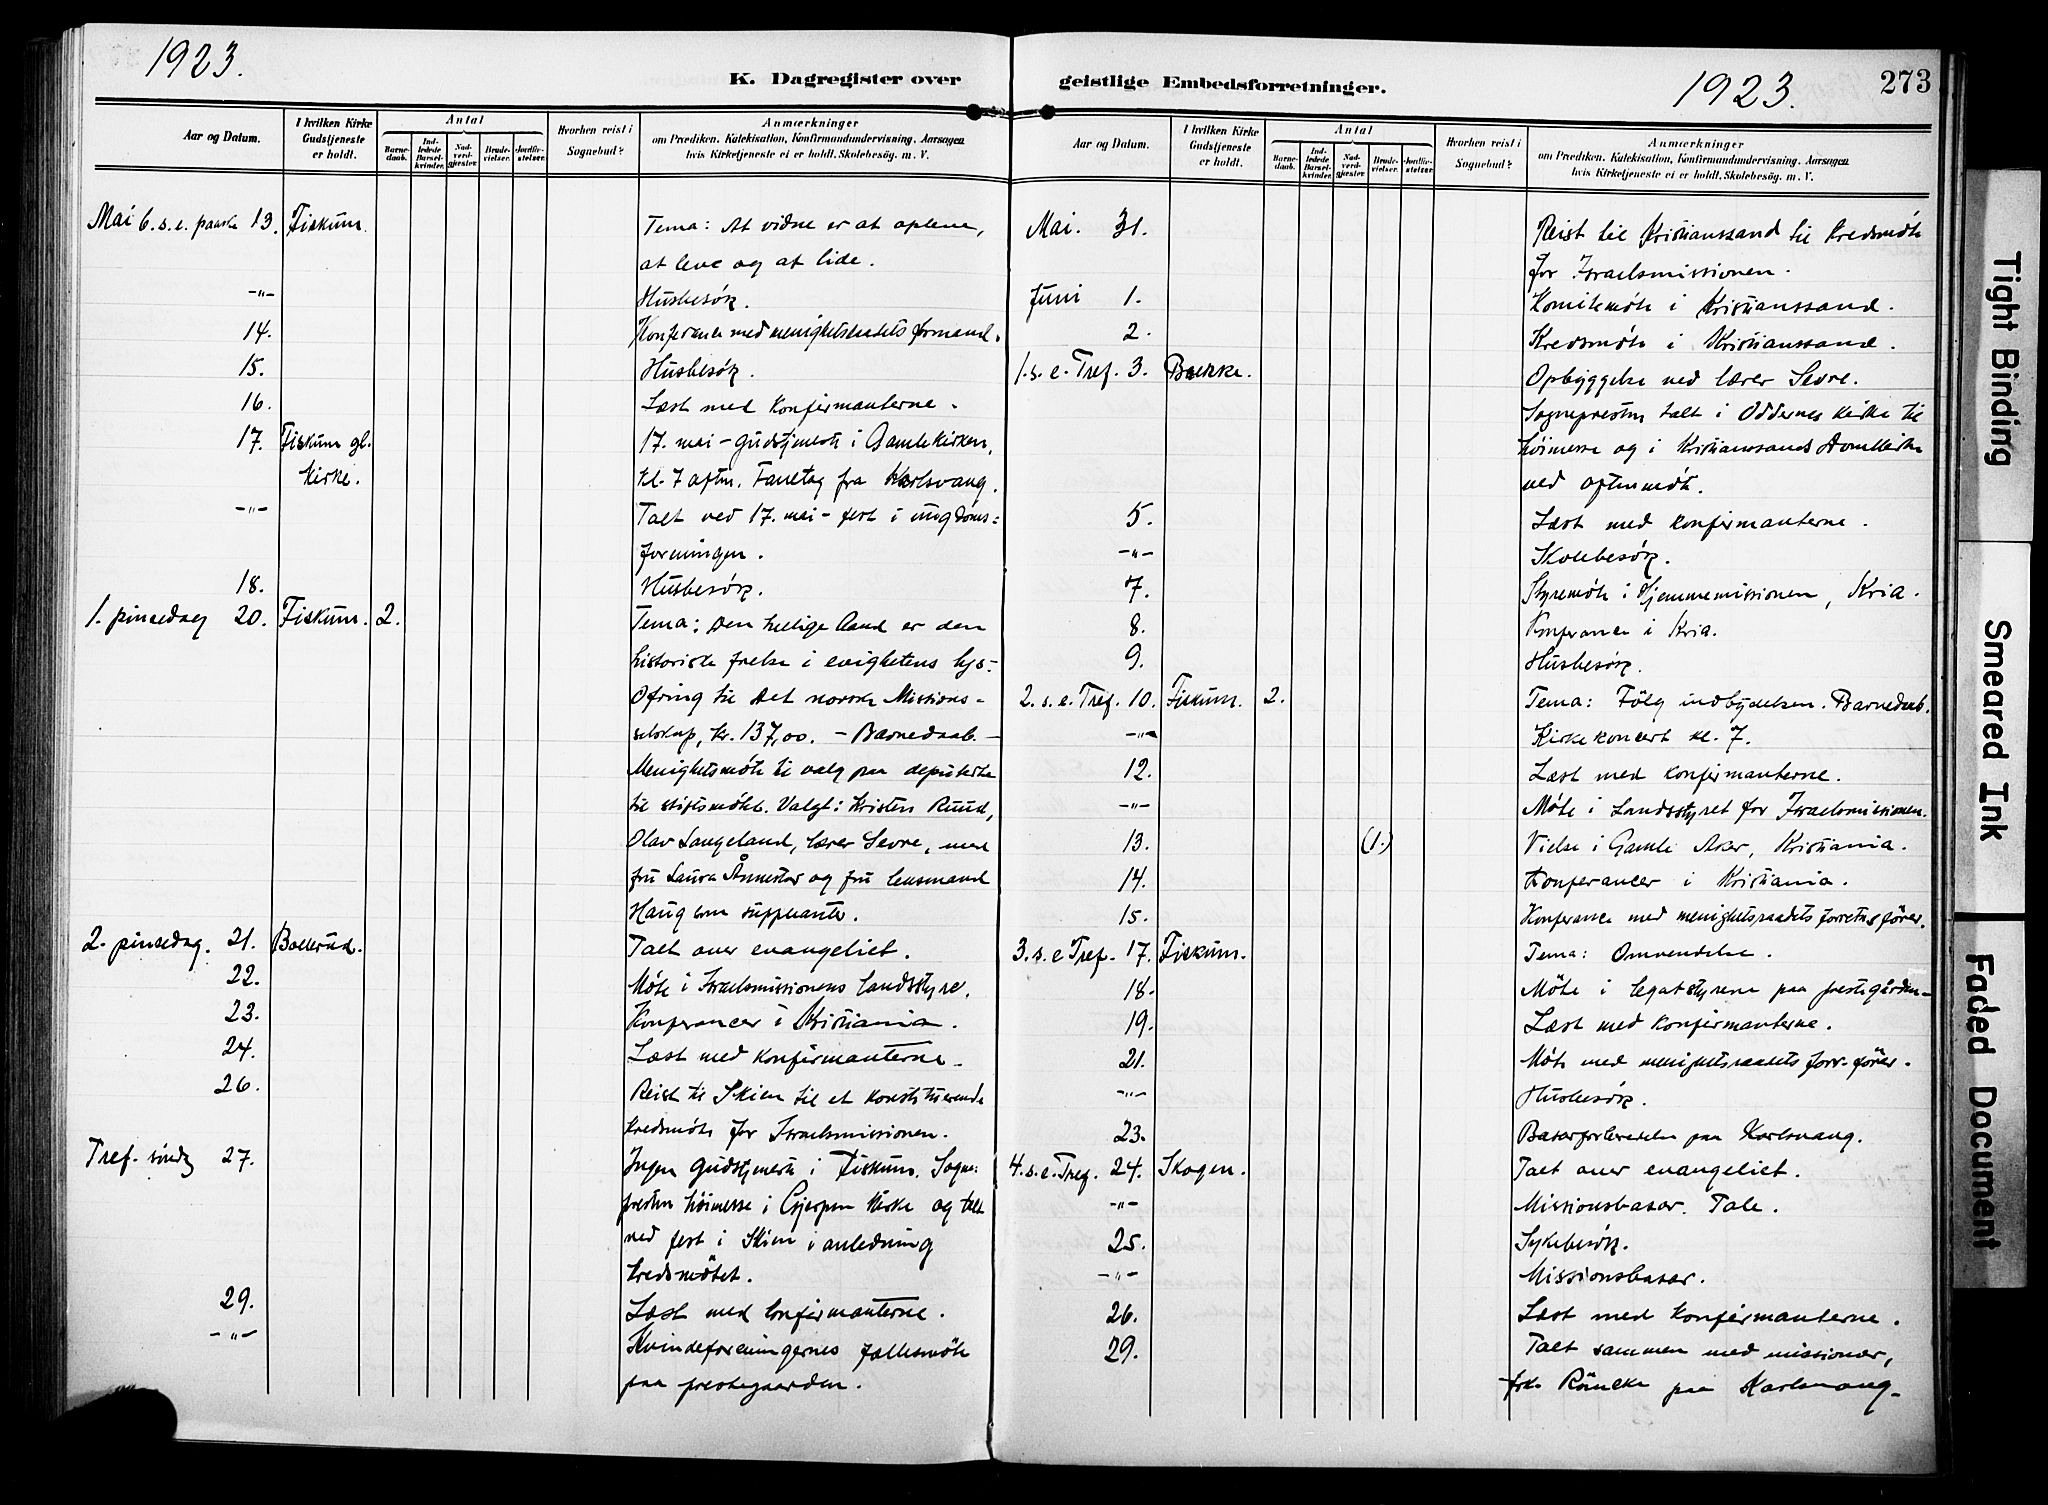 1923.
K. Dagregister over
Aar og Datum.
I hvilken Kirke Gudstjeneste er holdt.
Antal
Barnedaab.
Indledede Barselkvinder.
Nadverdgjester.
Brudevielser.
Jordfæstelser.
Hvorhen reist i Sognebud?
Anmærkninger
om Prædiken, Katekisation, Konfirmandundervisning, Aarsagen
hvis Kirketjeneste ei er holdt, Skolebesög. m. V.
Mai 6. s. e. paaske 13. Fiskum. Tema: At vidne er at opleve,
at leve og at lide.
-"- Husbesøk.
14. Konferance med menighetsraadets formand.
15. Husbesøk.
16. Læst med konfirmanterne.
17. Fiskum gl. 17. mai - gudstjeneste i Gamlekirken,
Kirke. kl. 7 aftm. Fanetog fra Karlsvang.
-"- Talt ved 17. mai - fest i ungdoms=
foreningen.
18. Husbesøk.
1. pinsedag 20. Fiskum. 2. Tema: Den hellige Aand er den
historiske frelse i evighetens lys.
Ofring til Det norske Missions=
selskap, kr. 137,00. - Barnedaab. -
Menighetsmøte til valg paa deputerte
til stiftsmøtet. Valgt: Kristen Ruud,
Olav Langeland, lærer Sevre, med
fru Laura Ånnestad og fru lensmand
Haug som suppleanter.
2. pinsedag. 21. Bollerud. Talt over evangeliet.
22. Møte i Israelsmissionens landsstyre.
23. Konferancer i Kristiania.
24. Læst med konfirmanterne.
26. Reist til Skien til et konstituerende
kredsmøte for Israelsmissionen.
Tref. søndag 27. Ingen gudstjeneste i Fiskum. Sogne=
presten høimesse i Gjerpen kirke og talt
ved fest i Skien i anledning
kredsmøtet.
29. Læst med konfirmanterne.
-"- Kvindeforeningernes fællesmøte
paa prestegaarden.
geistlige Embedsforretninger.
1923.
273
Aar og Datum.
I hvilken Kirke Gudstjeneste er holdt.
Antal
Barnedaab.
Indledede Barselkvinder.
Nadverdgjester.
Brudevielser.
Jordfæstelser.
Hvorhen reist i Sognebud?
Anmærkninger
om Prædiken, Katekisation, Konfirmandundervisning, Aarsagen
hvis Kirketjeneste ei er holdt, Skolebesög. m. V.
Mai. 31. Reist til Kristianssand til kredsmøte
for Israelsmissionen.
Juni 1. Komitemøte i Kristianssand.
2. Kredsmøte i Kristianssand.
1. s. e. Tref. 3. Bakke. Opbyggelse ved lærer Sevre.
Sognepresten talt i Oddernes kirke til
høimesse og i Kristianssands Domkirke
ved aftenmøte.
5. Læst med konfirmanterne.
-"- Skolebesøk.
7. Styremøte i Hjemmemissionen, Kria.
8. Konferance i Kria.
9. Husbesøk.
2. s. e. Tref. 10. Fiskum. 2. Tema: Følg indbydelsen. Barnedaab.
-"- Kirkekoncert kl. 7.
12. Læst med konfirmanterne.
-"- Møte i Landsstyret for Israelsmissionen.
13. (1.) Vielse i Gamle Aker, Kristiania.
14. Konferancer i Kristiania.
15. Konferance med menighetsraadets forretningsfører.
3. s. e Tref. 17. Fiskum. Tema: Omvendelse.
18. Møte i legatstyrene paa prestegården.
19. Læst med konfirmanterne.
21. Møte med menighetsraadets forr.fører.
-"- Husbesøk.
23. Basarforberedelse paa Karlsvang.
4. s. e. Tref. 24. Skogen. Talt over evangeliet.
-"- Missionsbasar. Tale.
25. Sykebesøk.
-"- Missionsbasar.
26. Læst med konfirmanterne.
29. Talt sammen med missionær,
frk. Røncke paa Karlsvang.
Tight Binding
Smeared Ink
Faded Document